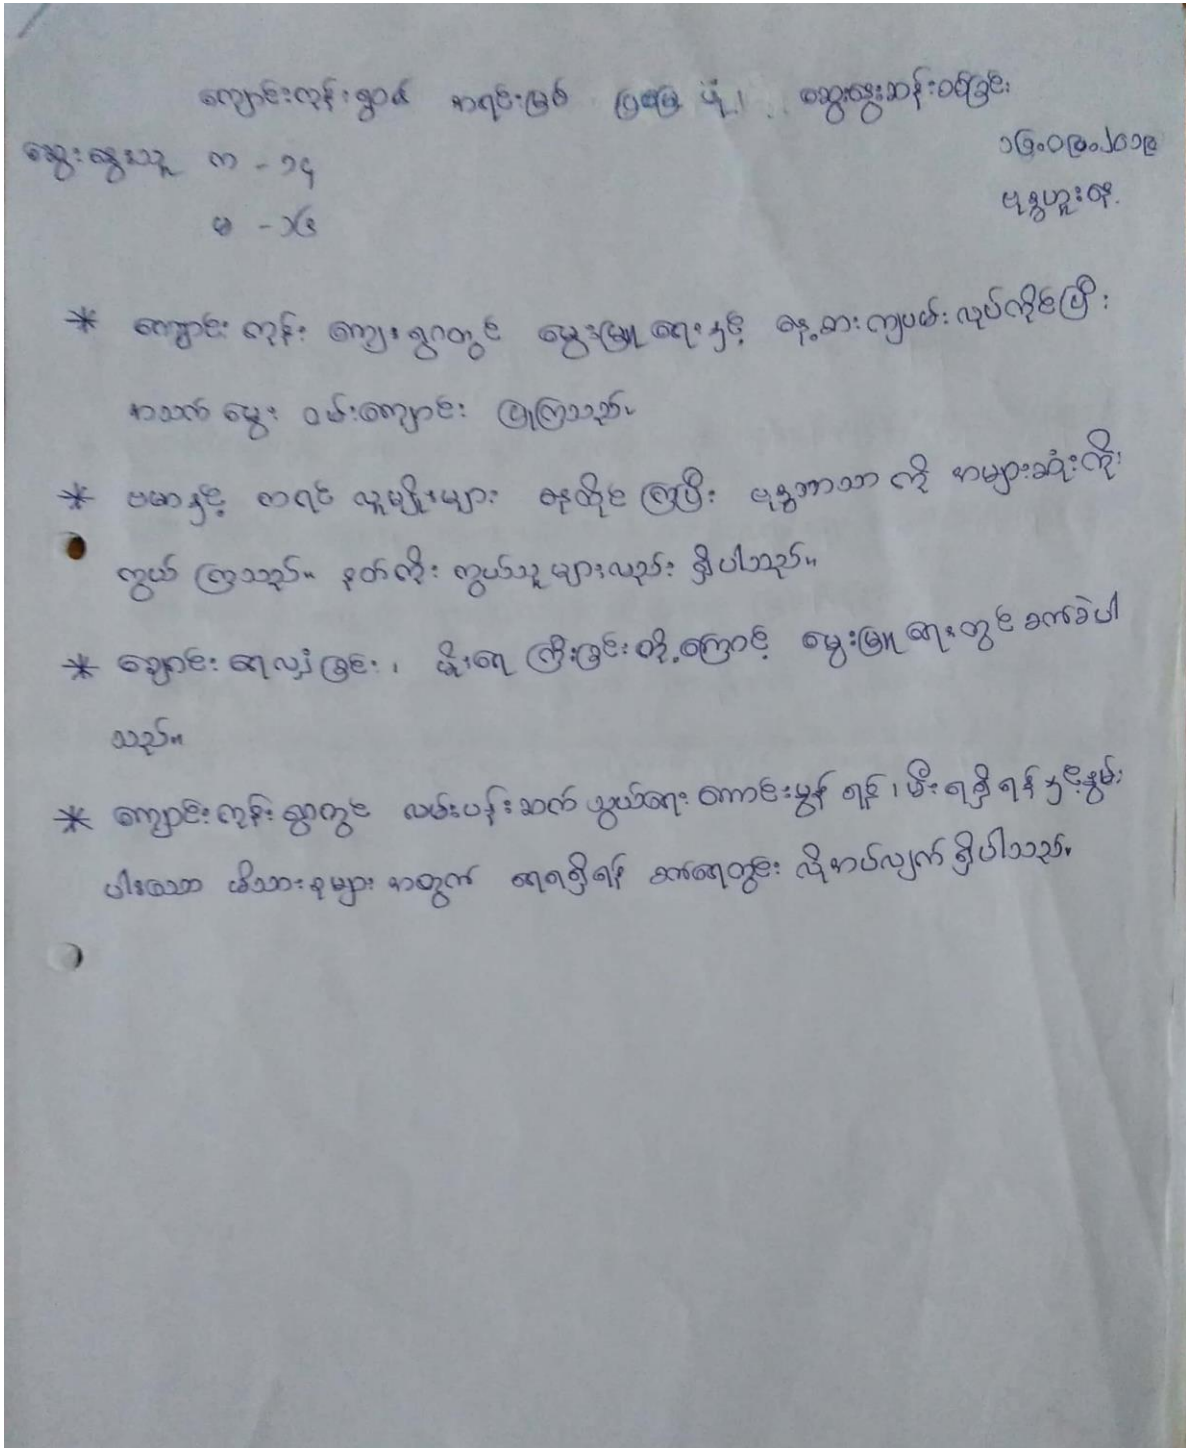 ကျောင်းကုန်းရွာ၏ အရင်းမြစ် ပြမြေပုံ၊ ဆွေးနွေးဆန်းစစ်ခြင်း
၁၆.၀၈.၂၀၁၈
ဆွေးနွေးသူ က - ၁၄
ဗုဒ္ဓဟူးနေ့.
မ - ၁၆
* ကျောင်းကုန်း ကျေးရွာတွင် မွေးမြူရေးနှင့် နေ့စားကျပမ်း လုပ်ကိုင်ပြီး
အသက်မွေး ဝမ်းကျောင်း ပြုကြသည်။
* ဗမာနှင့် ကရင် လူမျိုးများ နေထိုင်ကြပြီး ဗုဒ္ဓဘာသာ ကို အများဆုံးကိုး
ကွယ် ကြသည်။ နတ်ကိုး ကွယ်သူ များလည်း ရှိပါသည်။
* ချောင်းရေလျှံခြင်း၊ မိုးရေ ကြီးခြင်းတို့ကြောင့် မွေးမြူရေးတွင် ခက်ခဲပါ
သည်။
* ကျောင်းကုန်းရွာတွင် လမ်းပန်းဆက်သွယ်ရေး ကောင်းမွန် ရန်၊ မီးရရှိရန် နှင့်နွမ်း
ပါးသော မိသားစုများ အတွက် ရေရရှိရန် စက်ရေတွင်း လိုအပ်လျက် ရှိပါသည်။